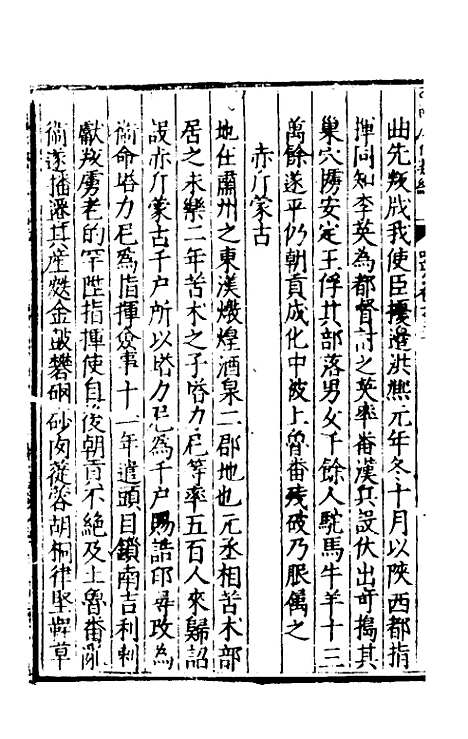 曲先叛戕我使臣擾邊洪熙元年冬十月以陝西都指
揮同知李英為都督討之英率番漢兵設伏出奇搗其
巢穴擄安定王俘其部落男女千餘人駝馬牛羊十三
萬餘遂平仍朝貢成化中被土魯番殘破乃服属之
赤斤蒙古
地在肅州之東漢燉煌酒泉二郡地也元丞相苦术部
居之永樂二年苦术之子塔力尼等率五百人來歸詔
設赤斤蒙古千戶所以塔力尼為千戶賜誥印尋改為
衛命塔力尼為指揮僉事十一年遣頭目鎖南吉利剌
獻叛虜老的罕陞指揮使自後朝貢不絕及土魯番亂
衛遂播遷其産麩金䃃礬硇砂肉蓯蓉胡桐律堅鞾草